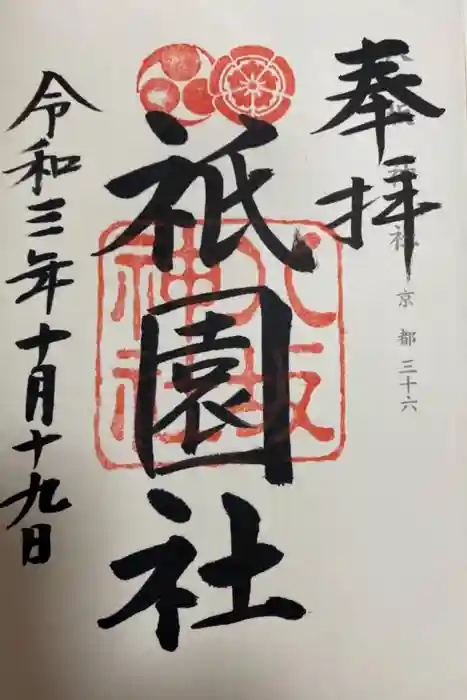 奉拝
京都三十六
祇園社
八坂神社
令和三年十月十九日